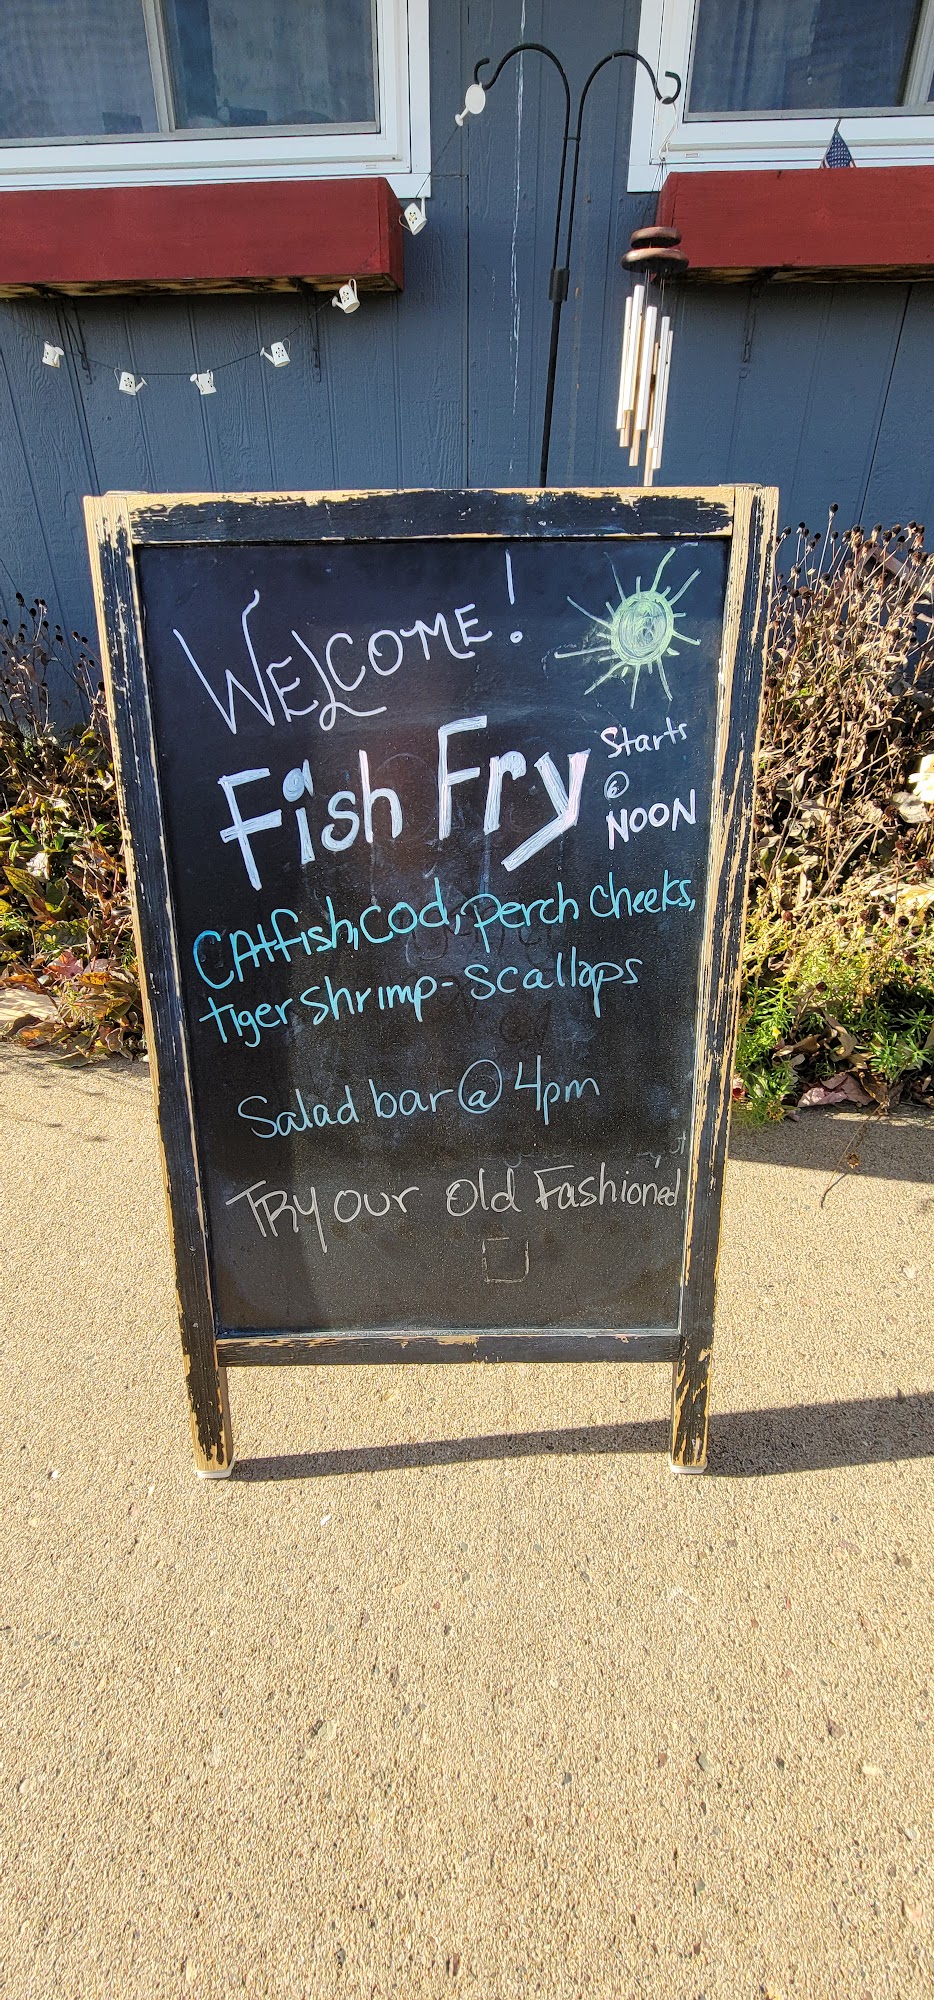 WELCOME!
Fish Fry
Starts
@
NOON
CAtfish, cod, perch cheeks,
tiger shrimp - scallops
Salad bar @ 4pm
TRY our Old Fashioned